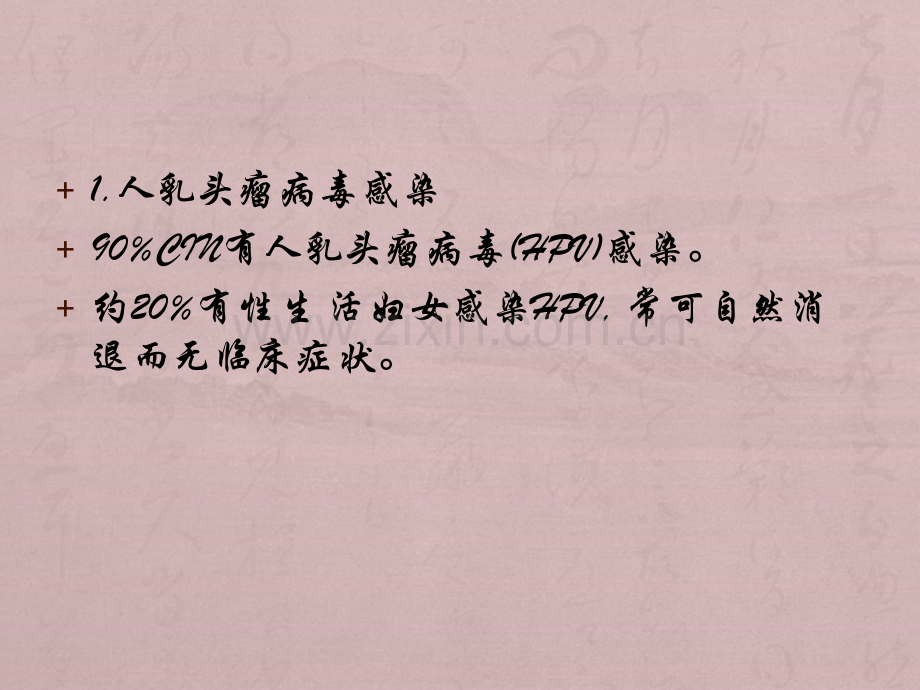 + 1.人乳头瘤病毒感染
+ 90%CIN有人乳头瘤病毒(HPV)感染。
+ 约20%有性生活妇女感染HPV,常可自然消
退而无临床症状。
www.zixin.com.cn